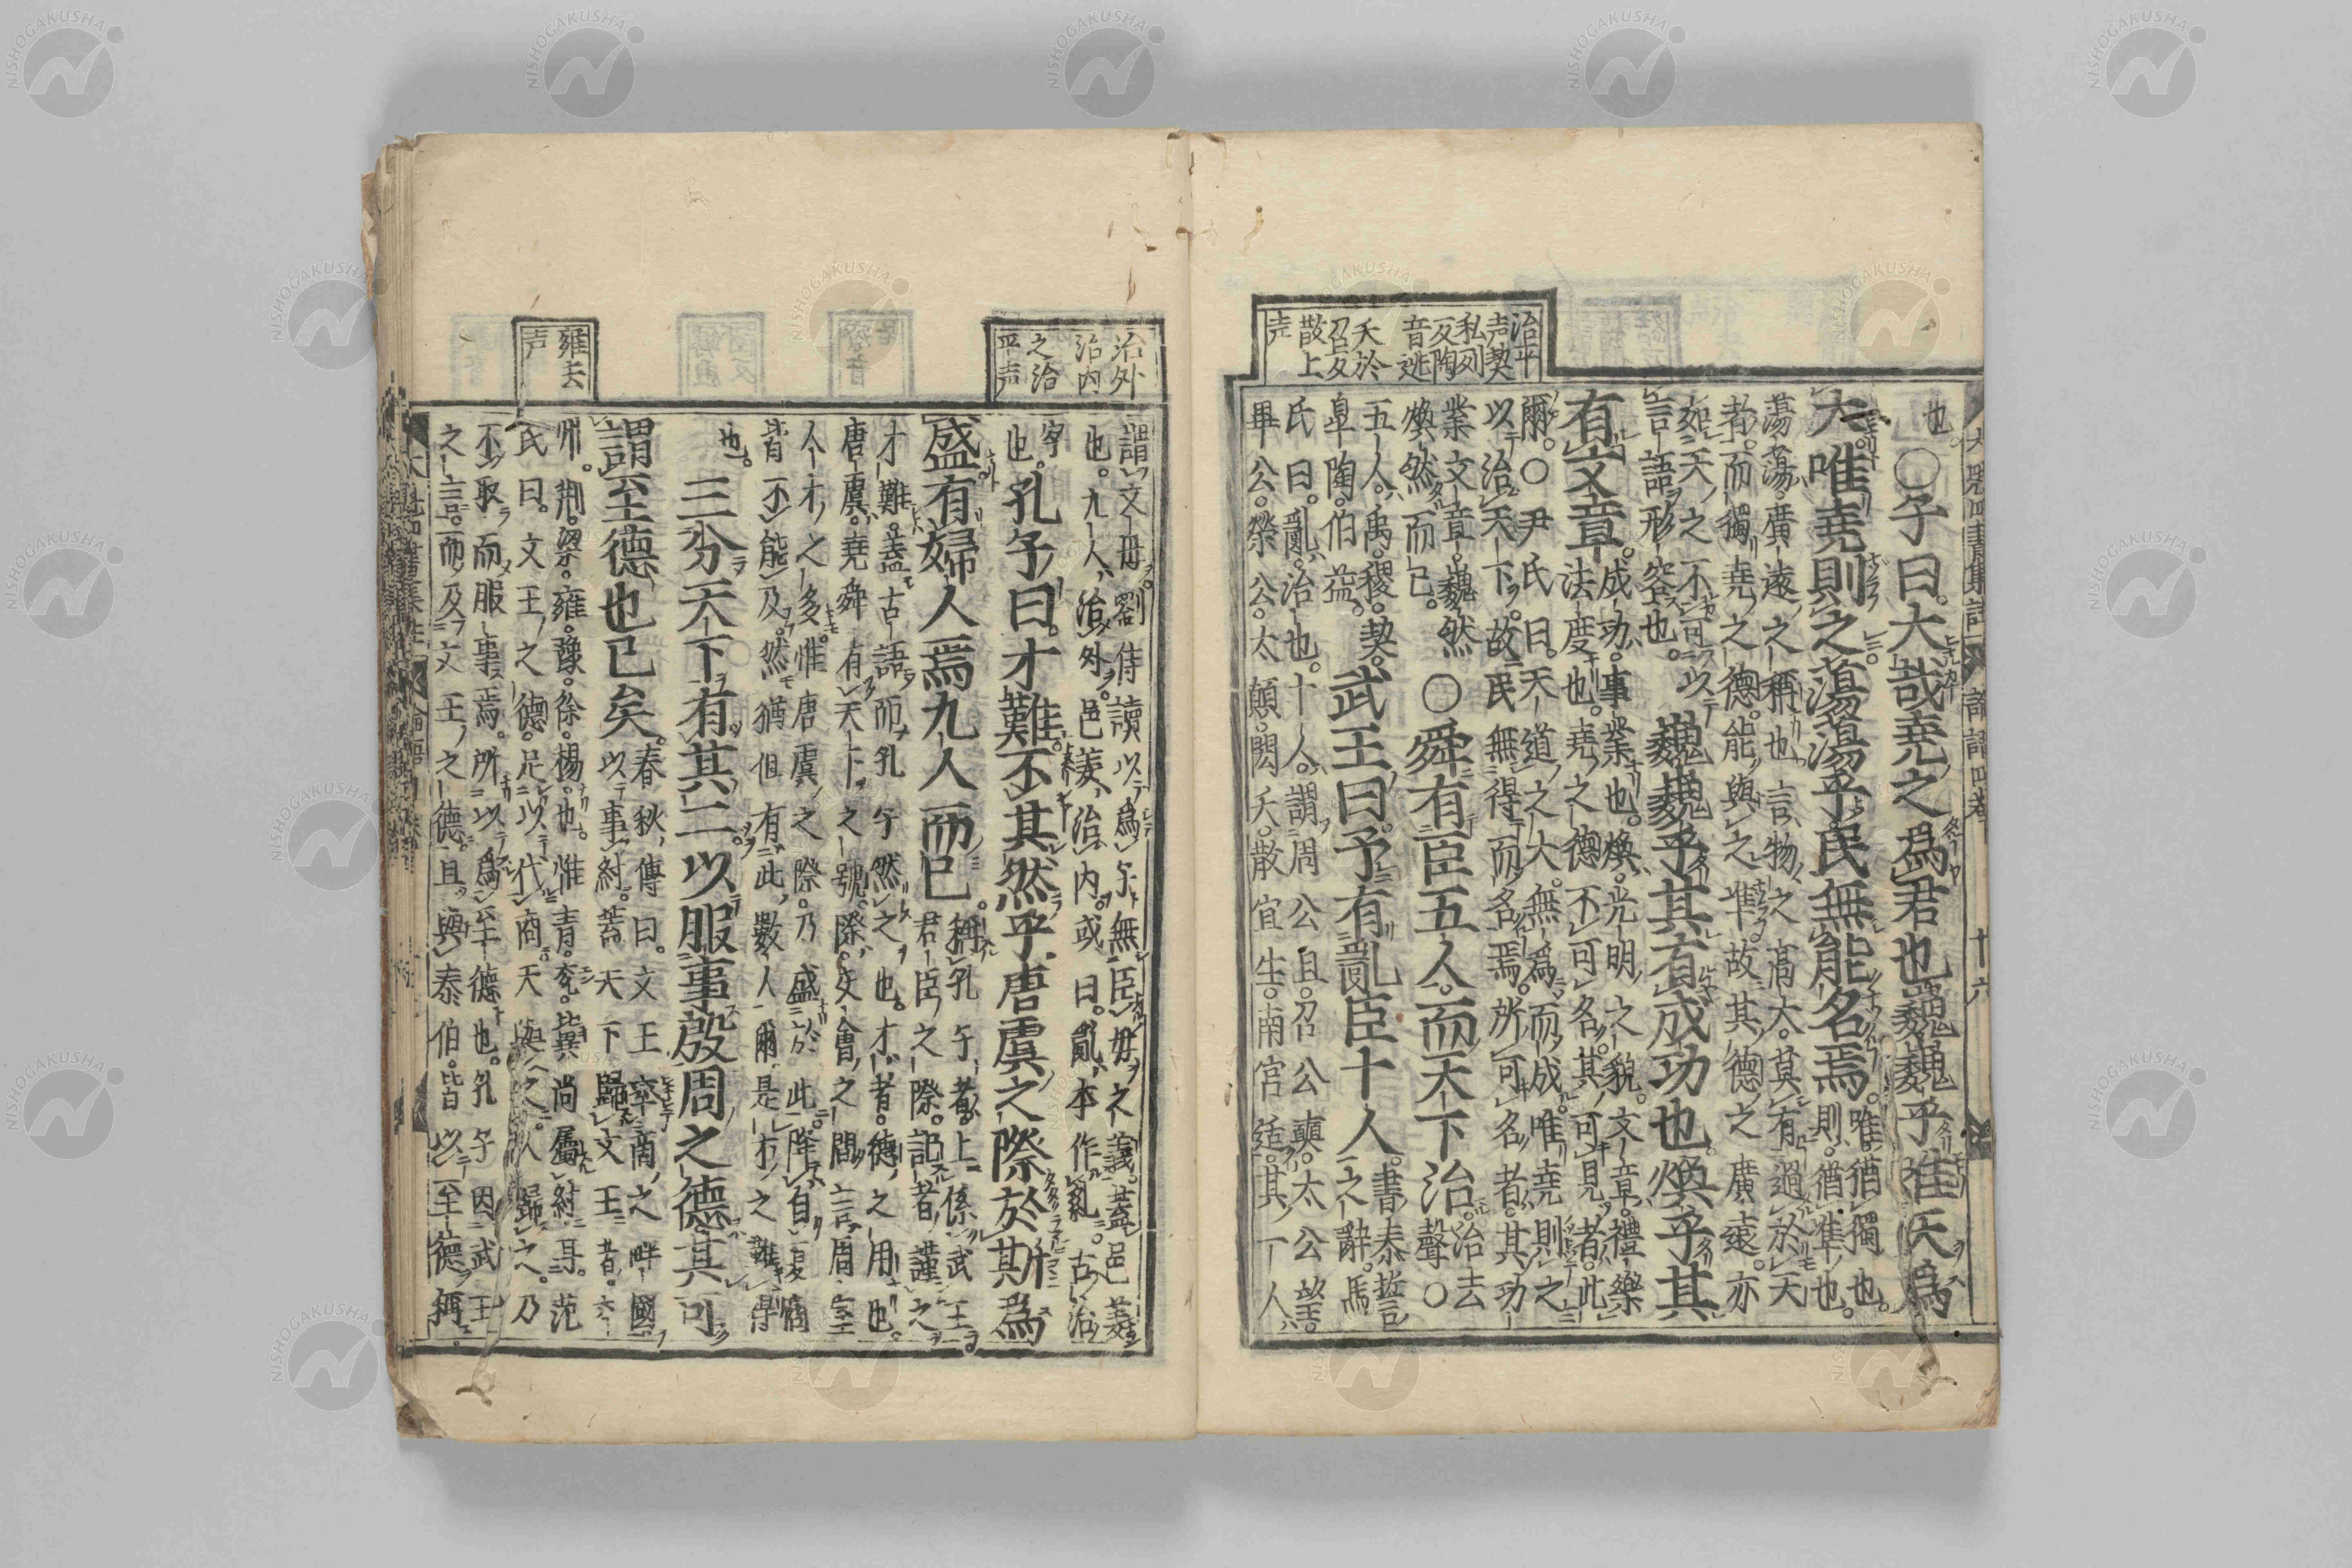 大魁四書集註 論語四卷 十六
治平
声契
私列
反陶
音逃
夭於
召反
散上
声
也。○子曰。大哉堯之爲君也巍巍乎唯天爲
大唯堯則之。蕩蕩乎民無能名焉。唯。猶獨也。
則。猶準也。
蕩蕩。廣遠之稱也。言物之高大。莫有過於天
者。而獨堯之德。能與之準。故其德之廣遠。亦
如天之不可以
言語形容也。巍巍乎其有成功也。煥乎其
有文章。成功。事業也。煥。光明之貌。文章。禮樂
法度也。堯之德不可名。其可見者。此
爾。○尹氏曰。天道之大。無爲而成。唯堯則之
以治天下。故民無得而名焉。所可名者。其功
業文章。巍然
煥然而已。○舜有臣五人。而天下治。治去
聲○
五人。禹。稷。契。
皐陶。伯益。武王曰。予有亂臣十人。書泰誓
之辭。馬
氏曰。亂。治也。十人。謂周公旦。召公奭。太公望。
畢公。榮公。太顛。閎夭。散宜生。南宮适。其一人。
治外
治内
之治
平声
雍去
声
謂文母。劉侍讀以爲子無臣母之義。蓋邑姜
也。九人治外。邑姜治内。或曰。亂本作乿。古治
字
也。孔子曰。才難。不其然乎。唐虞之際。於斯爲
盛。有婦人焉。九人而已。稱孔子者。上係武王
君臣之際。記者謹之。
才難。蓋古語。而孔子然之也。才者。德之用也。
唐虞。堯舜有天下之號。際。交會之間。言周室
人才之多。惟唐虞之際。乃盛於此。降自夏商。
皆不能及。然猶但有此數人爾。是才之難得
也。三分天下有其二。以服事殷。周之德。其可
謂至德也已矣。春秋傳曰。文王率商之畔國
以事紂。蓋天下歸文王者。六
州。荊。梁。雍。豫。徐。揚也。惟青。兗。冀。尚屬紂耳。范
氏曰。文王之德。足以代商。天與之。人歸之。乃
不取而服事焉。所以爲至德也。孔子因武王
之言。而及文王之德。且與泰伯。皆以至德稱。